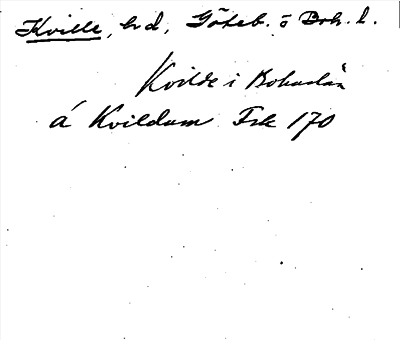 Kville, hd, Göteb. o Boh. l.
Kvilde i Bohuslän
á Kvildum Fsk 170